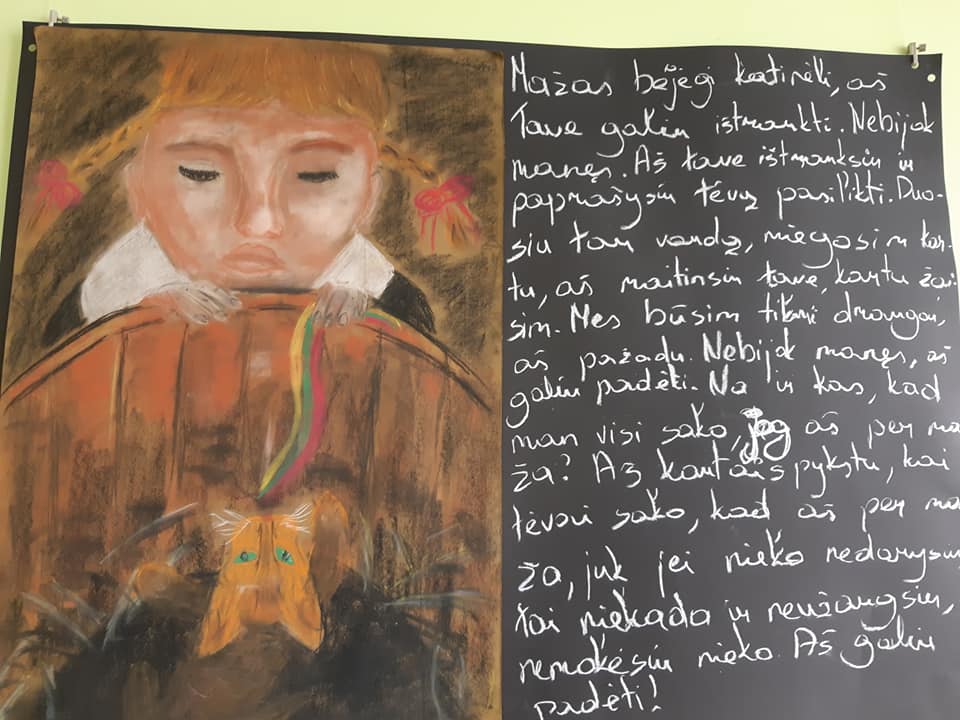 Mažas bėjėgi katinėli, aš
tave galiu ištraukti. Nebijok
manęs. Aš tave ištrauksiu ir
paprašysiu tėvų pasilikti. Duo-
siu tau vandę, miegosim kar-
tu, aš maitinsiu tave, kartu žai-
sim. Mes būsim tikri draugai,
aš pažadu. Nebijok manęs, aš
galiu padėti. Na ir kas, kad
man visi sako, jog aš per ma
ža? Aš kartais pykstu, kai
tėvai sako, kad aš per ma
ža, juk jei nieko nedarysiu,
tai niekada ir neužaugsiu,
nemokėsiu nieko. Aš galiu
padėti!